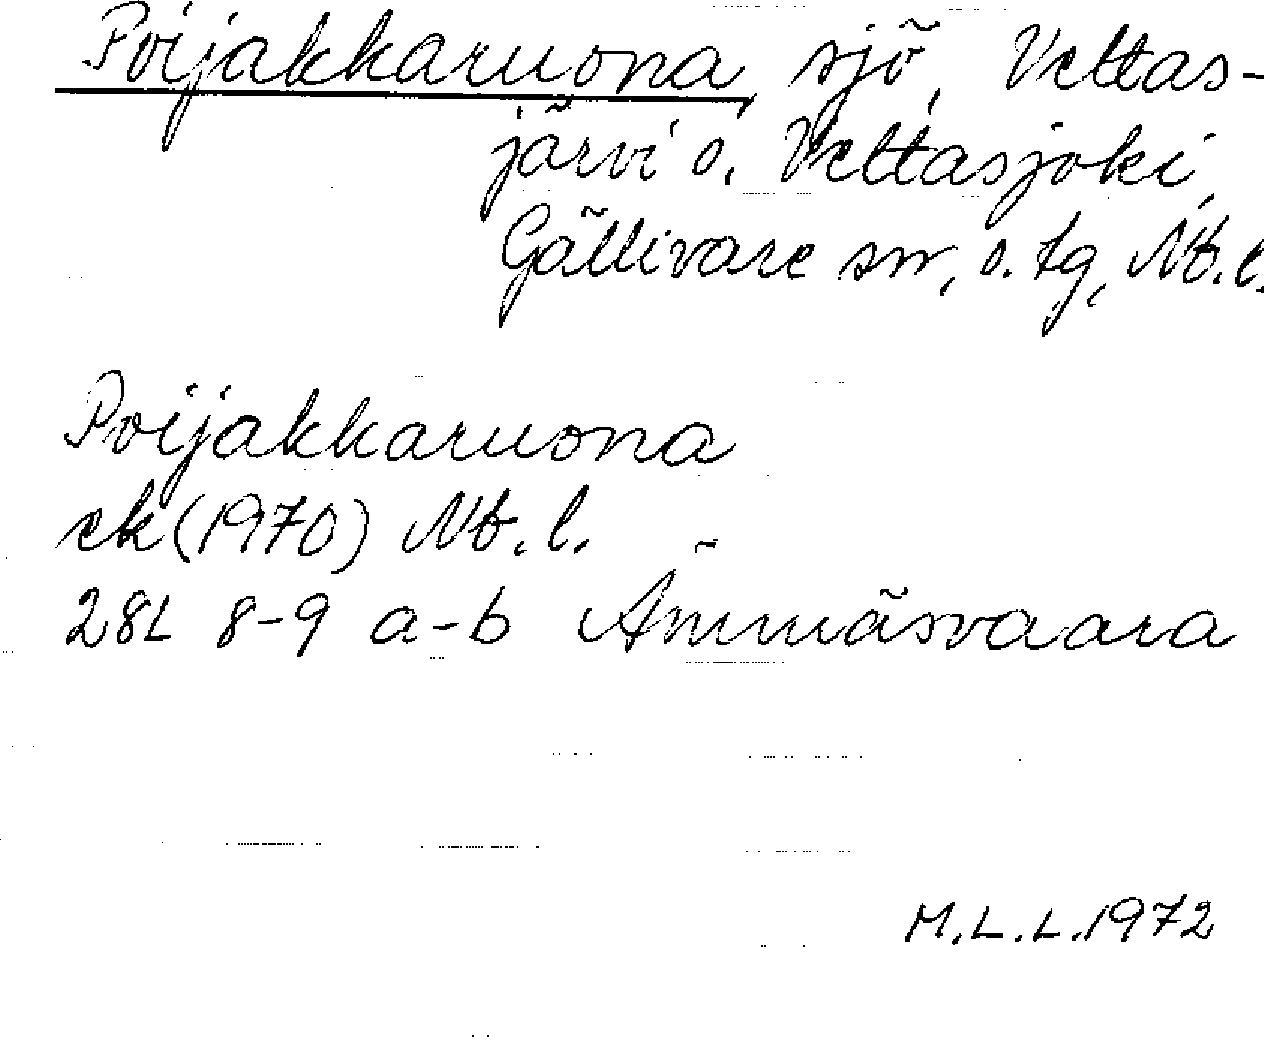 Poijakkaruona, sjö, Vettas-
järvi o. Vettasjoki,
Gällivare sn, o. tg, Nb. l.
Poijakkaruona
ek (1970) Nb. l.
28L 8-9 a-b Ämmäsvaara
M.L.L.1972